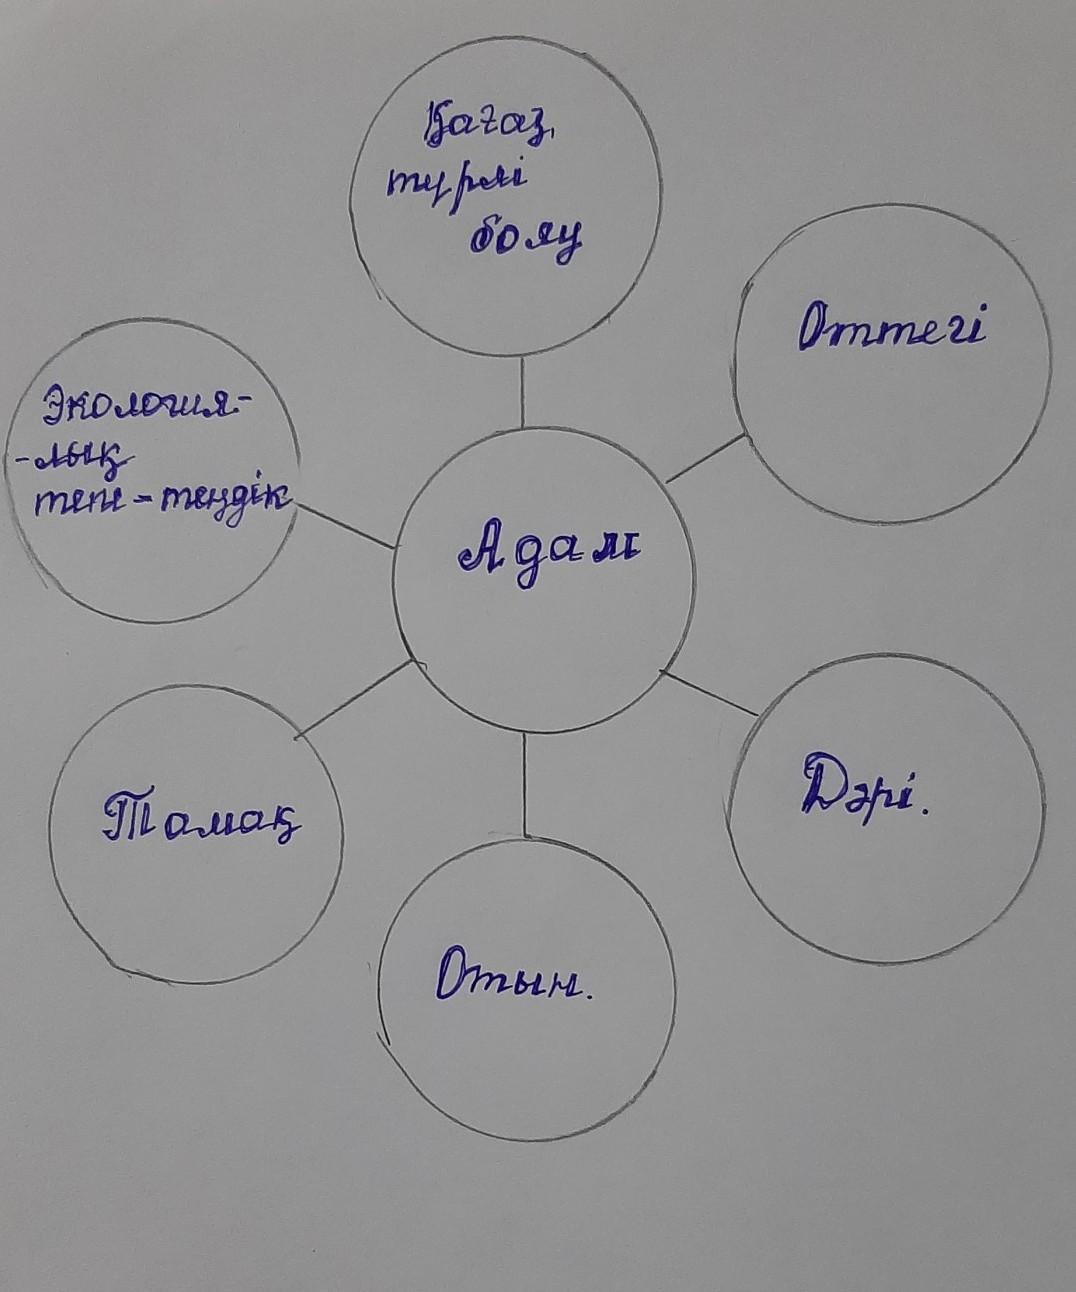 Қағаз,
түрлі
бояу
Оттегі
Экология-
-лық
тепе-теңдік
Адам
Дәрі.
Тамақ
Отын.